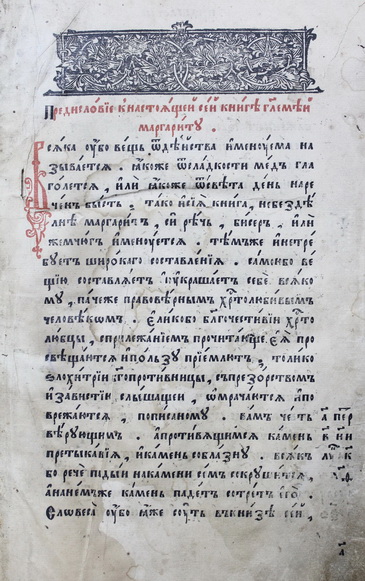 Предисловїе к̾настоѧщей сей книгѣ гл҃емѣй
маргари́тꙋ.
Всѧка оу҆бо вещь ѿдѣйства и҆менꙋема на
зывается. ꙗ҆коже ѿсладкости медъ гла
голется, и҆ли ꙗ҆коже ѿсвѣта день наре
ченъ бысть. тако и҆сїѧ книга, небездѣ
лнѣ маргаритъ, си рѣчь, бисеръ, и҆лѝ
жемчюгъ и҆менꙋется. тѣмъже и҆нетре
бꙋетъ широкаго составленїѧ. самоибо ве
щїю составлѧетъ и҆ꙋкрашаетъ себе всѧко
мꙋ, паче же правовѣрнымъ хрⷭ҇толюбивымъ
человѣкомъ. є҆ликобо благочестїви хрⷭ҇то
любцы, сприлежанїемъ прочитающе є҆ѧ̀ про
свѣщаются и҆ползꙋ прїемлютъ. толико
ѕлохитрїи и҆противницы, съпрезорствомъ
и҆завистїи слышащеи, ѡ҆мрачаются и҆по
врежаются, пописаномꙋ. вамъ честь
вѣрꙋющимъ. а҆противѧщимсѧ камень
претыканїѧ, и҆камень соблазнꙋ. всѧкъ
бо речѐ падыи накамени семъ сокрꙋшится,
а҆нанемъже камень падетъ сотретъ є҆го̀.
Словеса оу҆бо ꙗ҆же сꙋть въкнизѣ сей,
а҃ пер